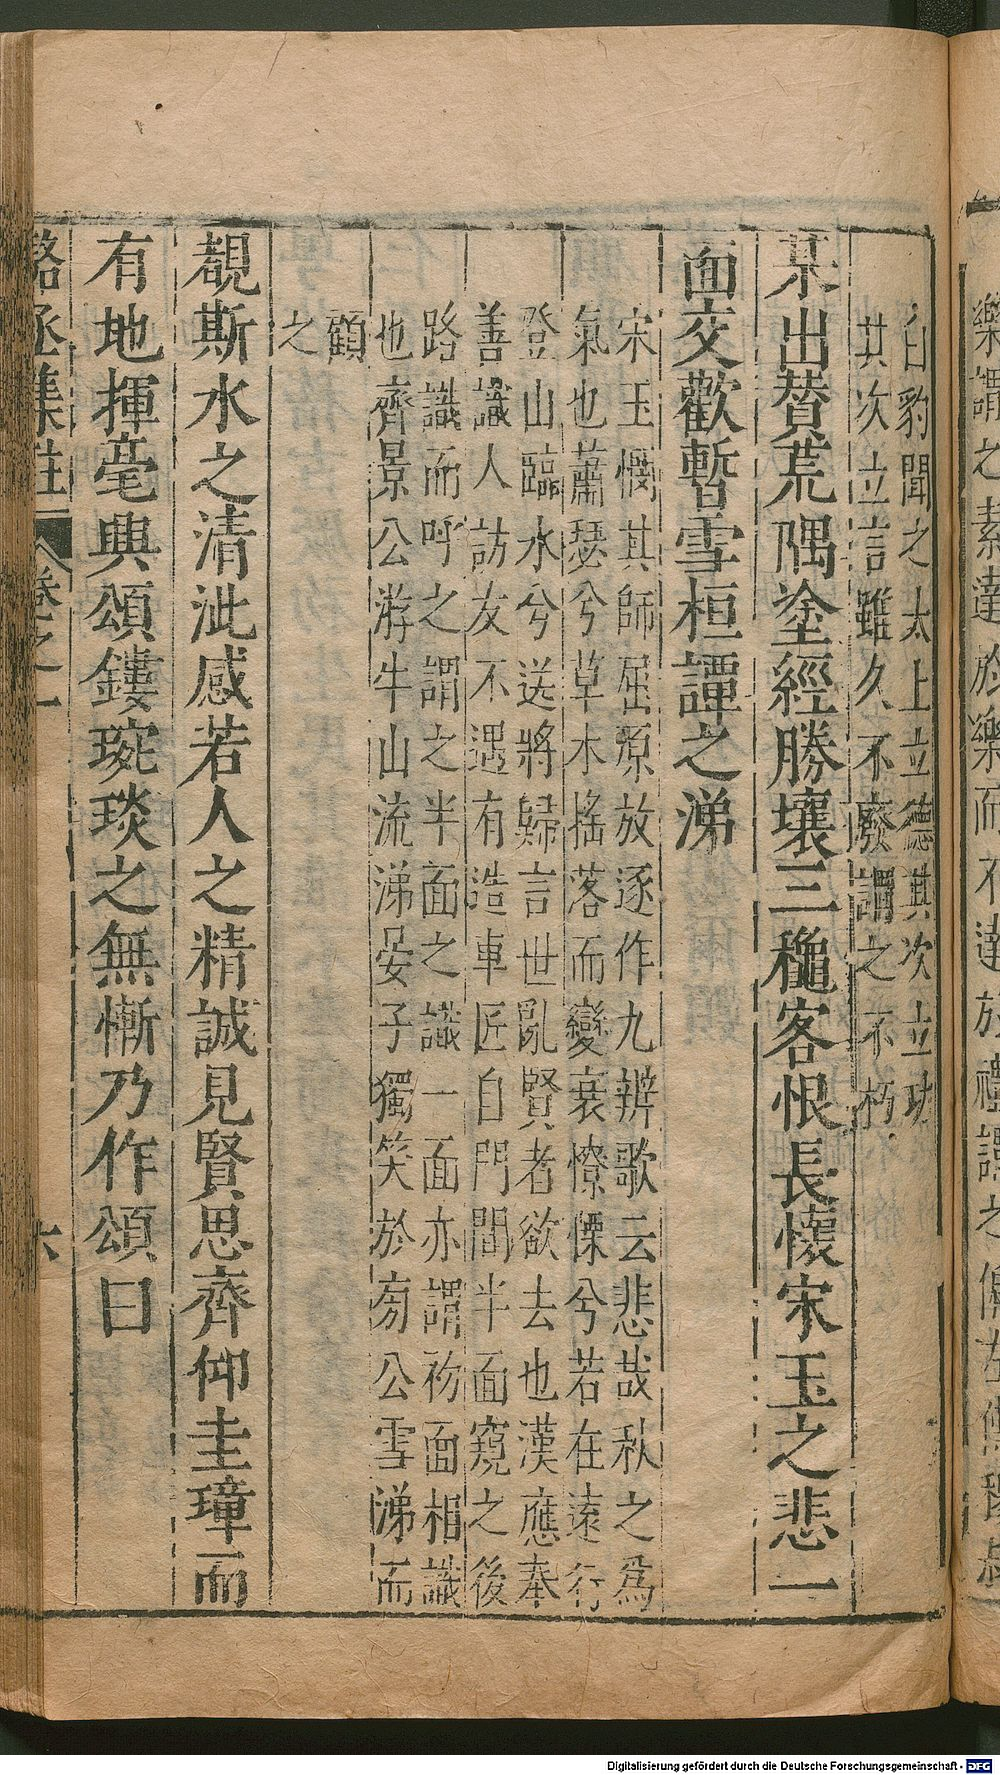 白豹聞之太上立德其次立功
其次立言雖久不廢謂之不朽
某出贊荒隅塗經勝壤三穐客恨長懷宋玉之悲一
面交歡暫雪桓譚之涕
宋玉憫其師屈原放逐作九辨歌云悲哉秋之為
氣也蕭瑟兮草木搖落而變衰憭慄兮若在遠行
登山臨水兮送將歸言世亂賢者欲去也漢應奉
善識人訪友不遇有造車匠自門間半面窺之後
路識而呼之謂之半面之識一面亦謂初面相識
也齊景公游牛山流涕晏子獨笑於旁公雪涕而
顧
之
覩斯水之清泚感若人之精誠見賢思齊仰圭璋而
有地揮毫興頌鏤琬琰之無慚乃作頌曰
駱丞集註 卷之一 六
樂謂之素達於樂而不達於禮謂之偏
Digitalisierung gefördert durch die Deutsche Forschungsgemeinschaft - DFG